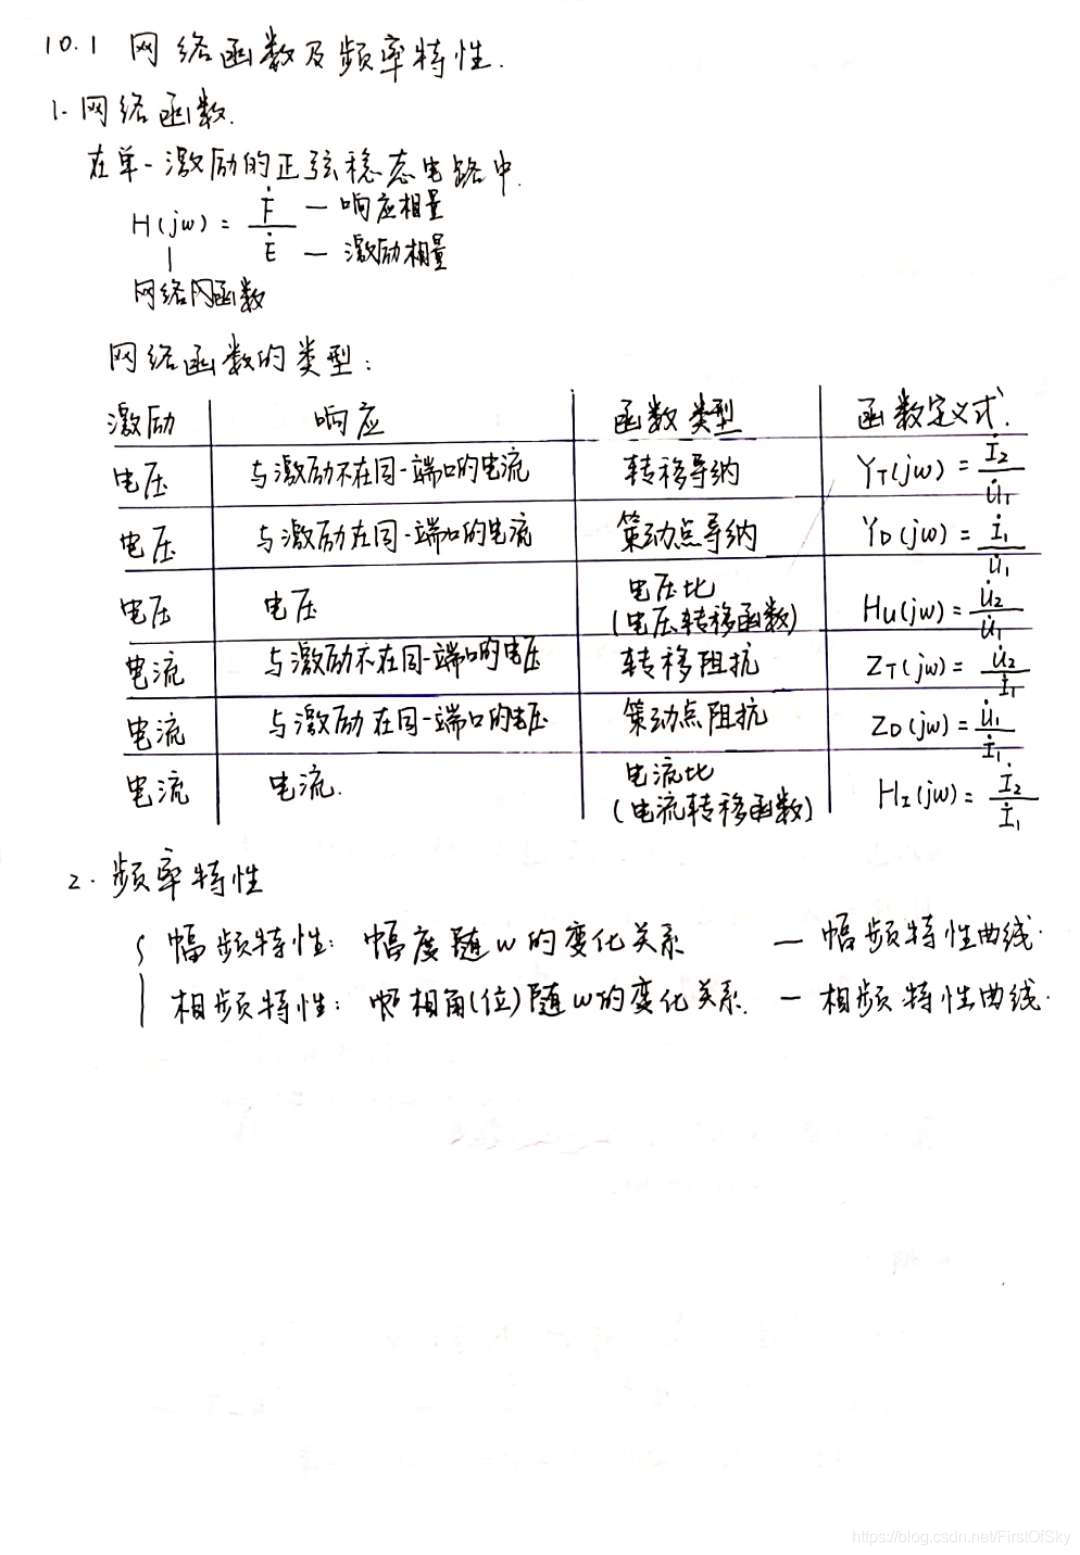 10.1 网络函数及频率特性.
1. 网络函数.
在单一激励的正弦稳态电路中.
H(jw) = Ḟ/Ė — 响应相量
— 激励相量
网络网函数
网络函数的类型:
激励 响应 函数类型 函数定义式.
电压 与激励不在同一端口的电流 转移导纳 YT(jw) = İ2/U̇1
电压 与激励在同一端口的电流 策动点导纳 YD(jw) = İ1/U̇1
电压 电压 电压比 (电压转移函数) Hu(jw) = U̇2/U̇1
电流 与激励不在同一端口的电压 转移阻抗 ZT(jw) = U̇2/İ1
电流 与激励在同一端口的电压 策动点阻抗 ZD(jw) = U̇1/İ1
电流 电流. 电流比 (电流转移函数) HI(jw) = İ2/İ1
2. 频率特性
{ 幅频特性: 幅度随w的变化关系 — 幅频特性曲线.
相频特性: 相角(位)随w的变化关系. — 相频特性曲线.
https://blog.csdn.net/FirstOfSky